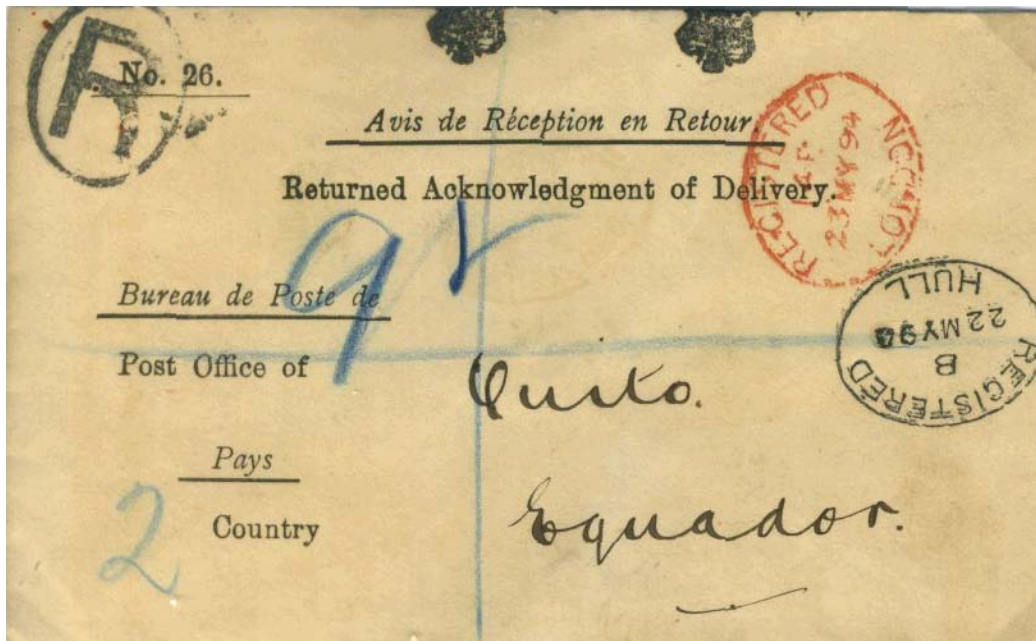 R
No. 26.
Avis de Réception en Retour
Returned Acknowledgment of Delivery.
REGISTERED LONDON
23 MY 94
REGISTERED HULL
B
22 MY 94
Bureau de Poste de
Post Office of
Quito.
Pays
Country
Equador.
2